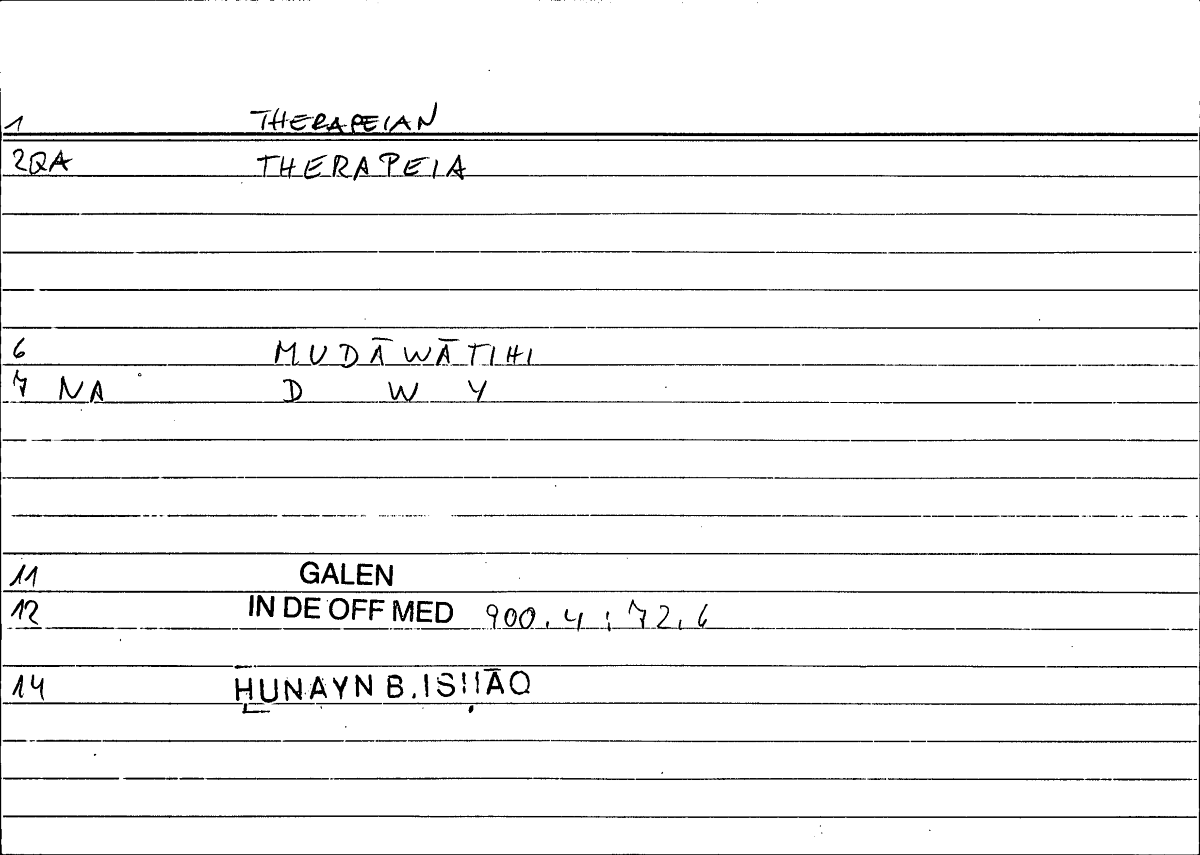 1 THERAPEIAN
2QA THERAPEIA
6 MUDĀWĀTIHI
7 NA D W Y
11 GALEN
12 IN DE OFF MED 900.4 ; 72.6
14 ḪUNAYN B. ISḤĀQ